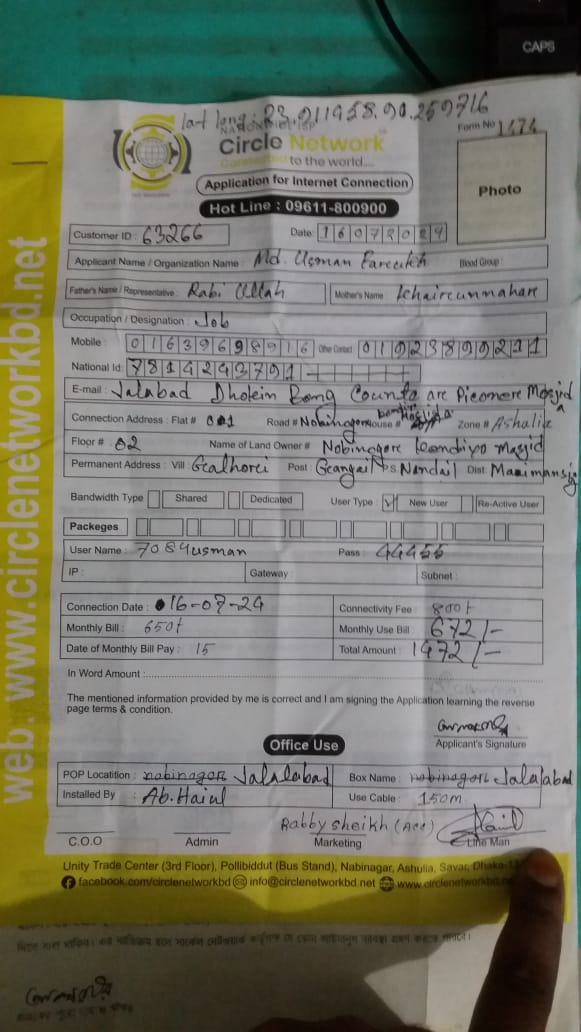 CAPS
lat long: 23.911958.90.259716
NATIONWIDE ISP
Form No 1474
Circle Network
Connected to the world....
Application for Internet Connection
Photo
Hot Line : 09611-800900
Customer ID : 63266 Date: 16072024
Applicant Name / Organization Name : Md. Usman Fareukh Blood Group :
Father's Name / Representative : Rabi Ullah Mother's Name
Occupation / Designation : Job
Mobile : 01639698916 Other Contact 01923899211
National Id: 7814243791
E-mail : Jalabad
Connection Address : Flat # 001 Road # Nobinagor House # Zone # Ashulia
Floor # 02 Name of Land Owner # Nobinogore Masjid
Permanent Address : Vill Post : P.S Nandail Dist
Bandwidth Type Shared Dedicated User Type : ✓ New User Re-Active User
Packeges
User Name : 7084usman Pass : 44455
IP : Gateway : Subnet :
Connection Date : 16-07-24 Connectivity Fee : 800t
Monthly Bill : 650t Monthly Use Bill : 672/-
Date of Monthly Bill Pay : 15 Total Amount : 1472/-
In Word Amount :
The mentioned information provided by me is correct and I am signing the Application learning the reverse
page terms & condition.
Applicant's Signature
Office Use
POP Locatition : nobinagor Jalalabad Box Name : nobinagor Jalalabad
Installed By : Ab. Haiul Use Cable : 150m
Rabby Sheikh (Acc)
C.O.O Admin Marketing Line Man
Unity Trade Center (3rd Floor), Pollibiddut (Bus Stand), Nabinagar, Ashulia, Savar, Dhaka-13
facebook.com/circlenetworkbd info@circlenetworkbd.net www.circlenetworkbd.ne
web: www.circlenetworkbd.net